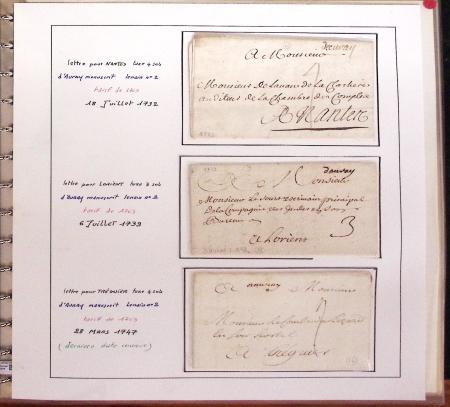 lettre pour NANTES taxe 4 sols
d'Auray manuscrit lenain nº 2
tarif de 1703
18 Juillet 1732
dauray
A Monsieur
Monsieur
auditeur de la Chambre des Comptes
A Nantes
lettre pour LORIENT taxe 3 sols
d'Auray manuscrit lenain nº 2
tarif de 1703
6 Juillet 1739
dauray
A Monsieur
Monsieur
De la Compagnie des Indes en son
Bureau
3
a Lorient
lettre pour TREGUIER taxe 4 sols
d'Auray manuscrit lenain nº 2
tarif de 1703
28 Mars 1747
(dernière date connue)
A dauray Monsieur
Monsieur
en son hostel
A Treguier